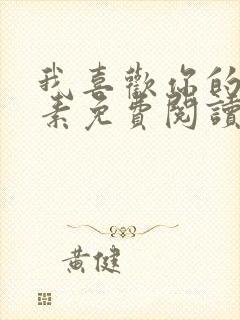 我喜歡你的
素免費閱讀
黃健